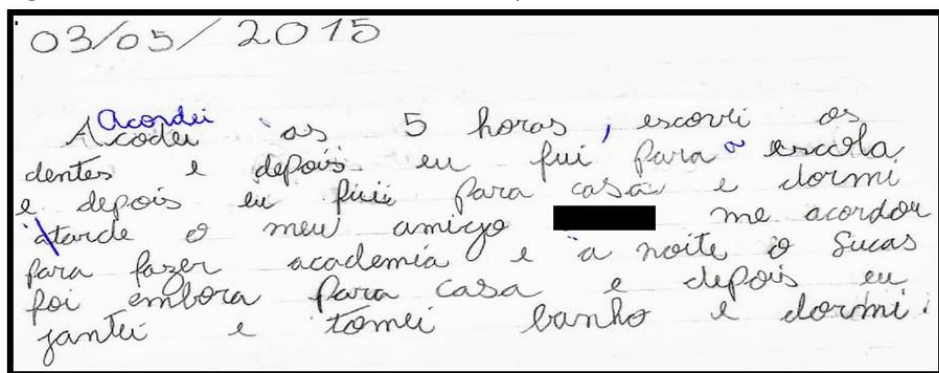 03/05/2015
Acordei
Acodei as 5 horas, escovei os
dentes e depois eu fui para a escola
e depois eu fuii para casa e dormi
atarde o meu amigo me acordou
para fazer academia e a noite o Lucas
foi embora para casa e depois eu
jantei e tomei banho e dormi.